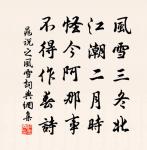 風雪三冬北
江潮二月時
怪今阿那事
不得作春詩
晁說之風雪詞典網集